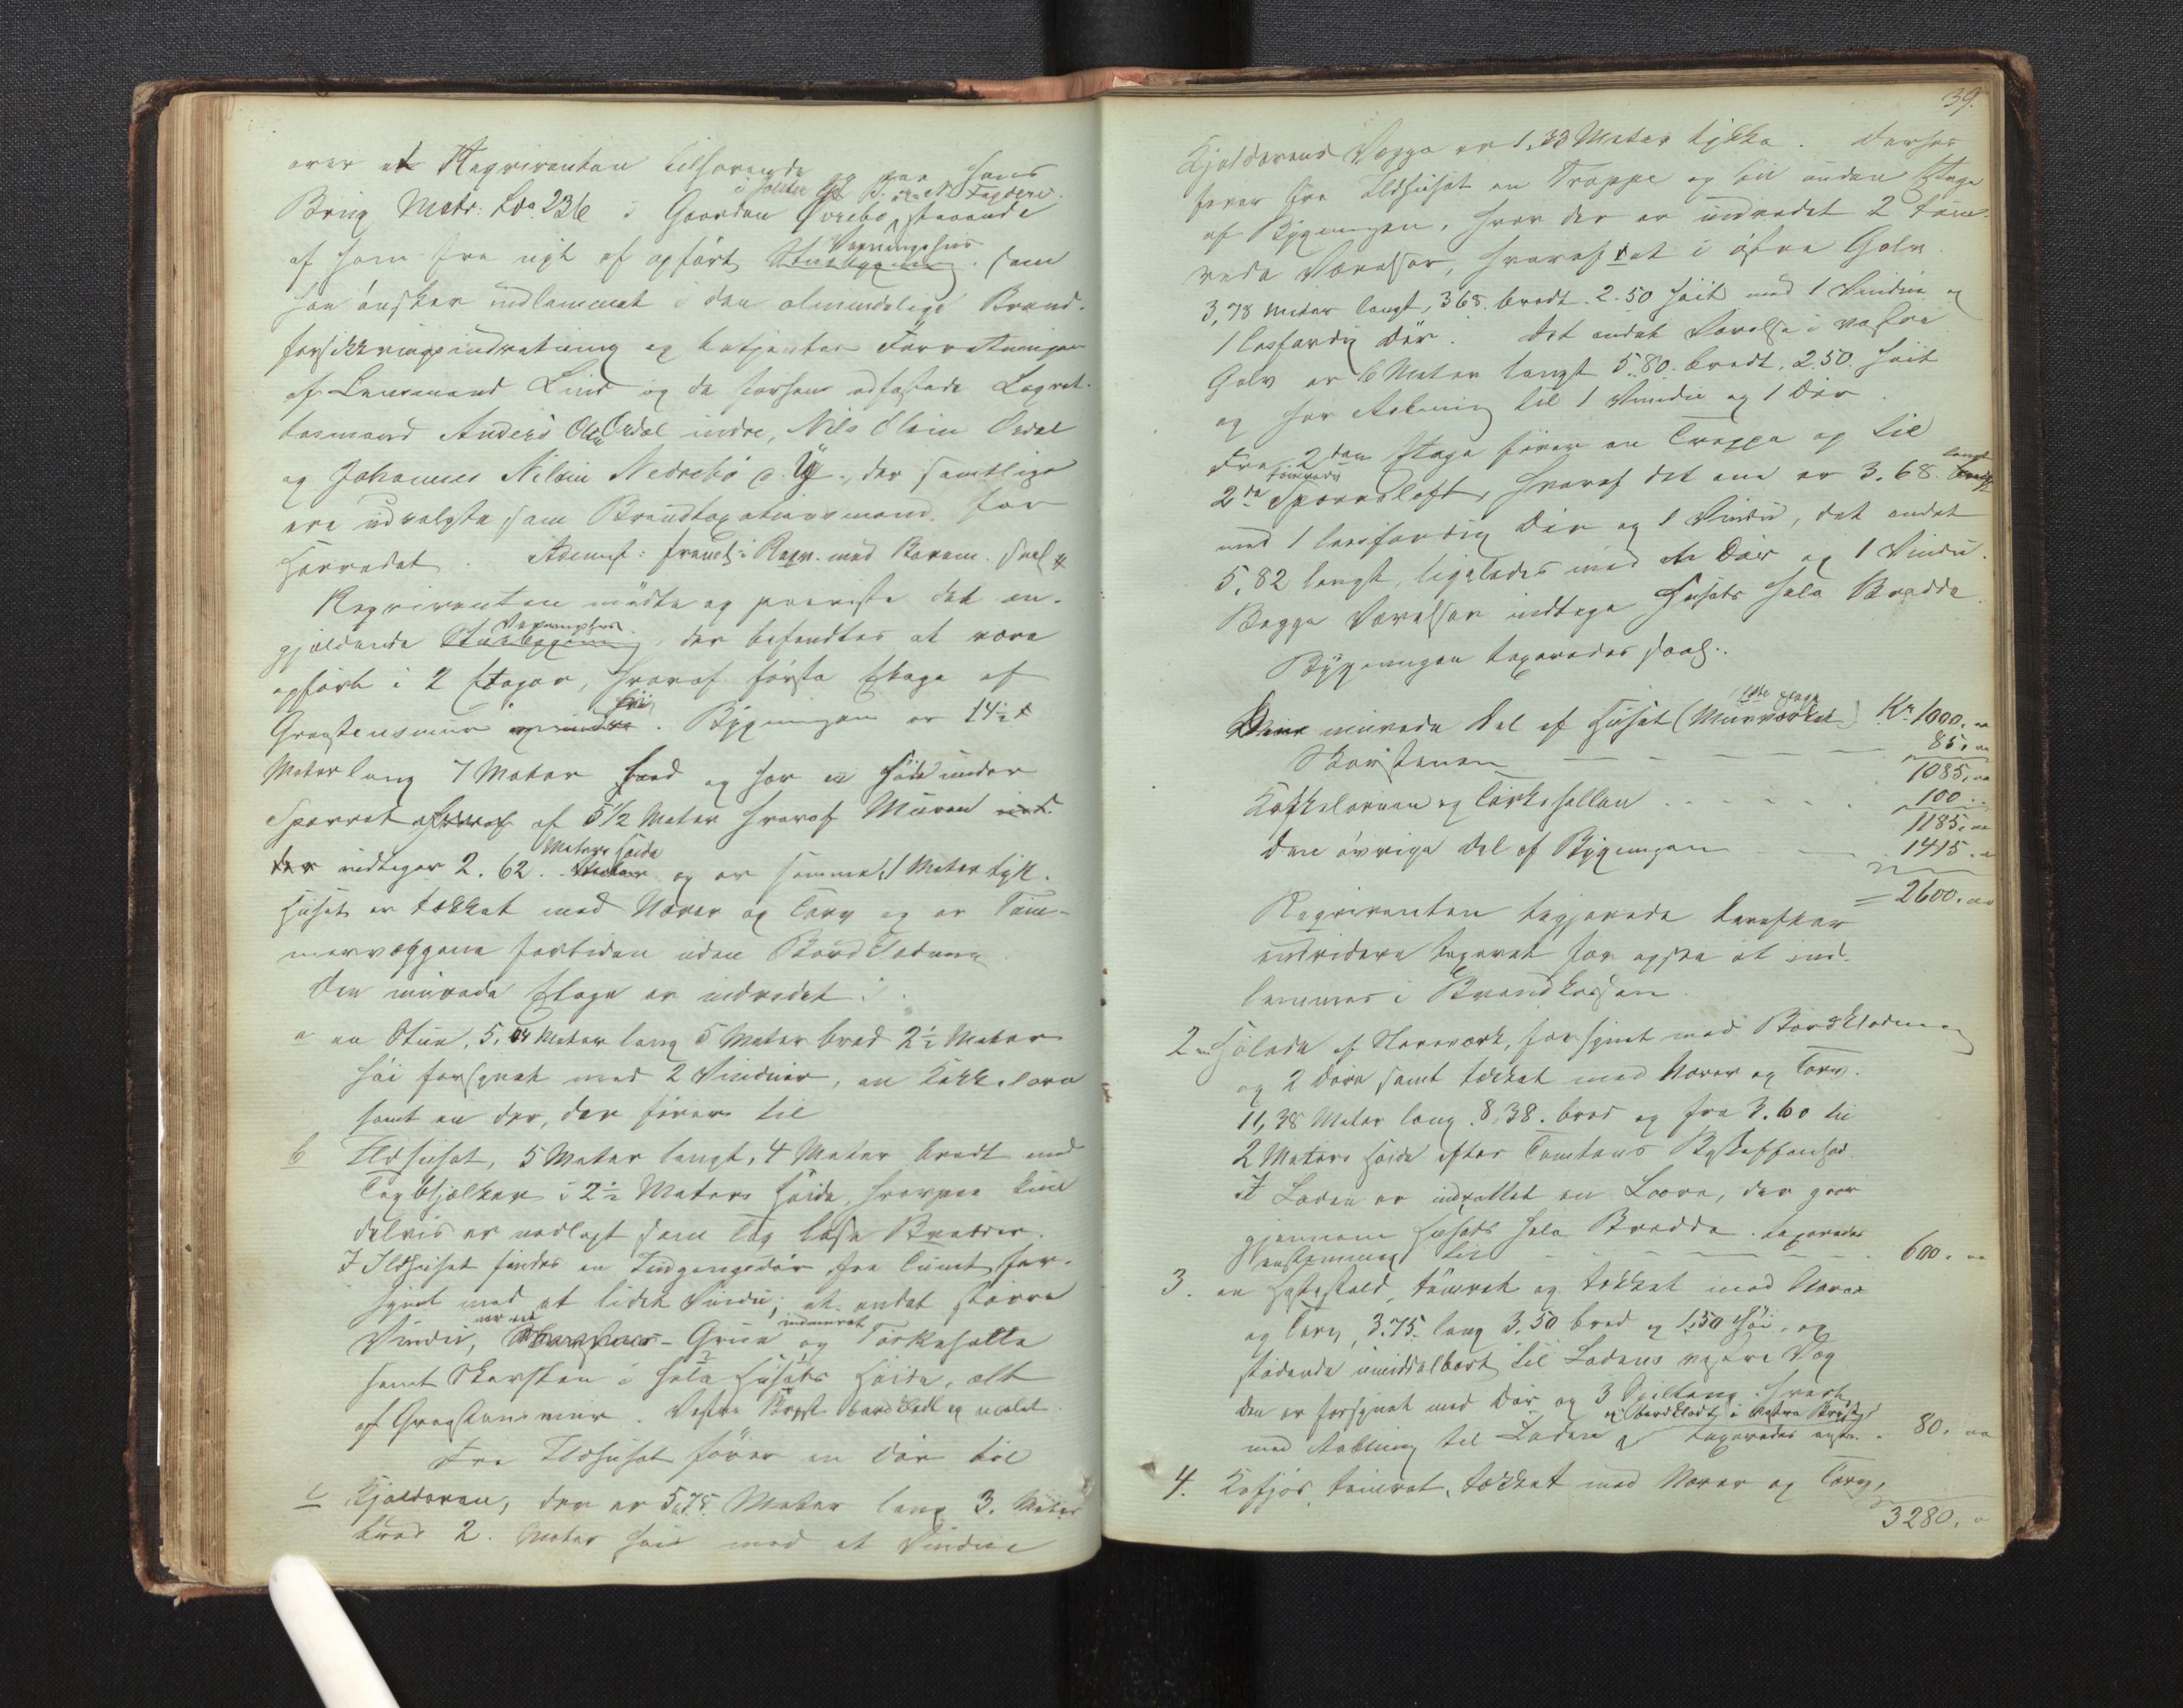 over et Reqvirenten tilhørende og paa hans
Brug Matr: Lno 236 i Gaarden Øvrebø, staaende
af ham fra nyt af opført Vaaningshus som
han ønsker indlemmet i den almindelige Brand-
forsikringsindretning og betjentes Forretningen
af Lensmand Lind og de forhen edfæstede Lagret-
tesmænd Anders Olsen Ordal indre, Nils Olsen Ordal
og Johannes Nilsen Nedrebø, der samtlige
ere udvalgte som Brandtaxationsmænd for
Herredet. Reqv. med
Reqvirenten mødte og paaviste det an-
gjeldende Vaaningshus, der befandtes at være
opført i 2 Etager, hvoraf første Etage af
Graastensmur. Bygningen er 14½
Meter lang 7 Meter bred og har en Høide under
Sperret af 5 1/2 Meter hvoraf Muren
indtager 2.62. Meters Høide og er samme 1 Meter tyk.
Huset er tækket med Næver og Torv og er Tøm-
mervæggene fortiden uden Bordklædning
Den murede Etage er indredet:
a en Stue, 5,04 Meter lang 5 Meter bred 2½ Meter
høi forsynet med 2 Vinduer, en Kakkelovn
samt en Dør, der fører til
b Ildhuset, 5 Meter langt, 4 Meter bredt med
Tagbjælker i 2½ Meters Høide, hvorpaa kun
delvis er nedlagt som Tag løse Brædder.
I Ildhuset findes en Indgangsdør fra Tunet for-
synet med et lidet Vindu; et andet større
Vindu, Grue og indmuret Tørkehelle
samt Skorsten i hele Husets Høide, alt
af Graastensmur. Vestre Bryst bordklædt og malet.
Fra Ildhuset fører en Dør til
c Kjælderen, der er 5,75 Meter lang 3. Meter
bred 2. Meter høi med et Vindue
39.
Kjelderens Vægge er 1,33 Meter tykke. Derhos
fører fra Ildhuset en Trappe og til anden Etage
af Bygningen, hvor der er indredet 2 tøm-
rede Værelser, hvoraf et i østre Golv
3,78 Meter langt, 3.68. bredt. 2.50 høit med 1 Vindue og
1 løsfærdig Dør. Det andet Værelse i vestre
Golv er 6 Meter langt 5.80. bredt, 2.50. høit
og har Aabning til 1 Vindu og 1 Dør.
Fra 2den Etage fører en Trappe op til
2de tømrede Sperreloft, hvoraf det ene er 3.68. langt
med 1 løsfærdig Dør og 1 Vindu, det andet
5,82 langt, ligeledes med en Dør og 1 Vindu.
Begge Værelser indtage Husets hele Bredde
Bygningen taxeredes saal:
Den murede Del af Huset (1ste Etage Murværket) Kr 1000.
Skorstenen 85.
1085.
Kakkelovnen og Tørkehellen 100.
1185.
Den øvrige Del af Bygningen 1415.
= 2600.
Reqvirenten begjærede derefter
endvidere taxeret for ogsaa at ind-
lemmes i Brandkassen.
2 Hølade af Staveverk, forsynet med Bordklædning
og 2 Døre samt tækket med Næver og Torv.
11,38 Meter lang. 8,38. bred og fra 3.60 til
2 Meters Høide efter Tomtens Beskaffenhed.
I Laden er indrettet en Loove, der gaar
gjennem Husets hele Bredde. taxeredes
enstemmig til 600.
3. en Hestestald, tømret og tækket med Næver
og Torv, 3.75. lang 3.50 bred og 1,50 høi, og
stødende umiddelbart til Ladens vestre Væg
den er forsynet med Dør og 3 Spiltoug
med Aabning til Laden og bordklædt i vestre Bryst taxeredes enst. 80.
4. Kufjøs, tømret, tækket med Næver og Torv,
3280.